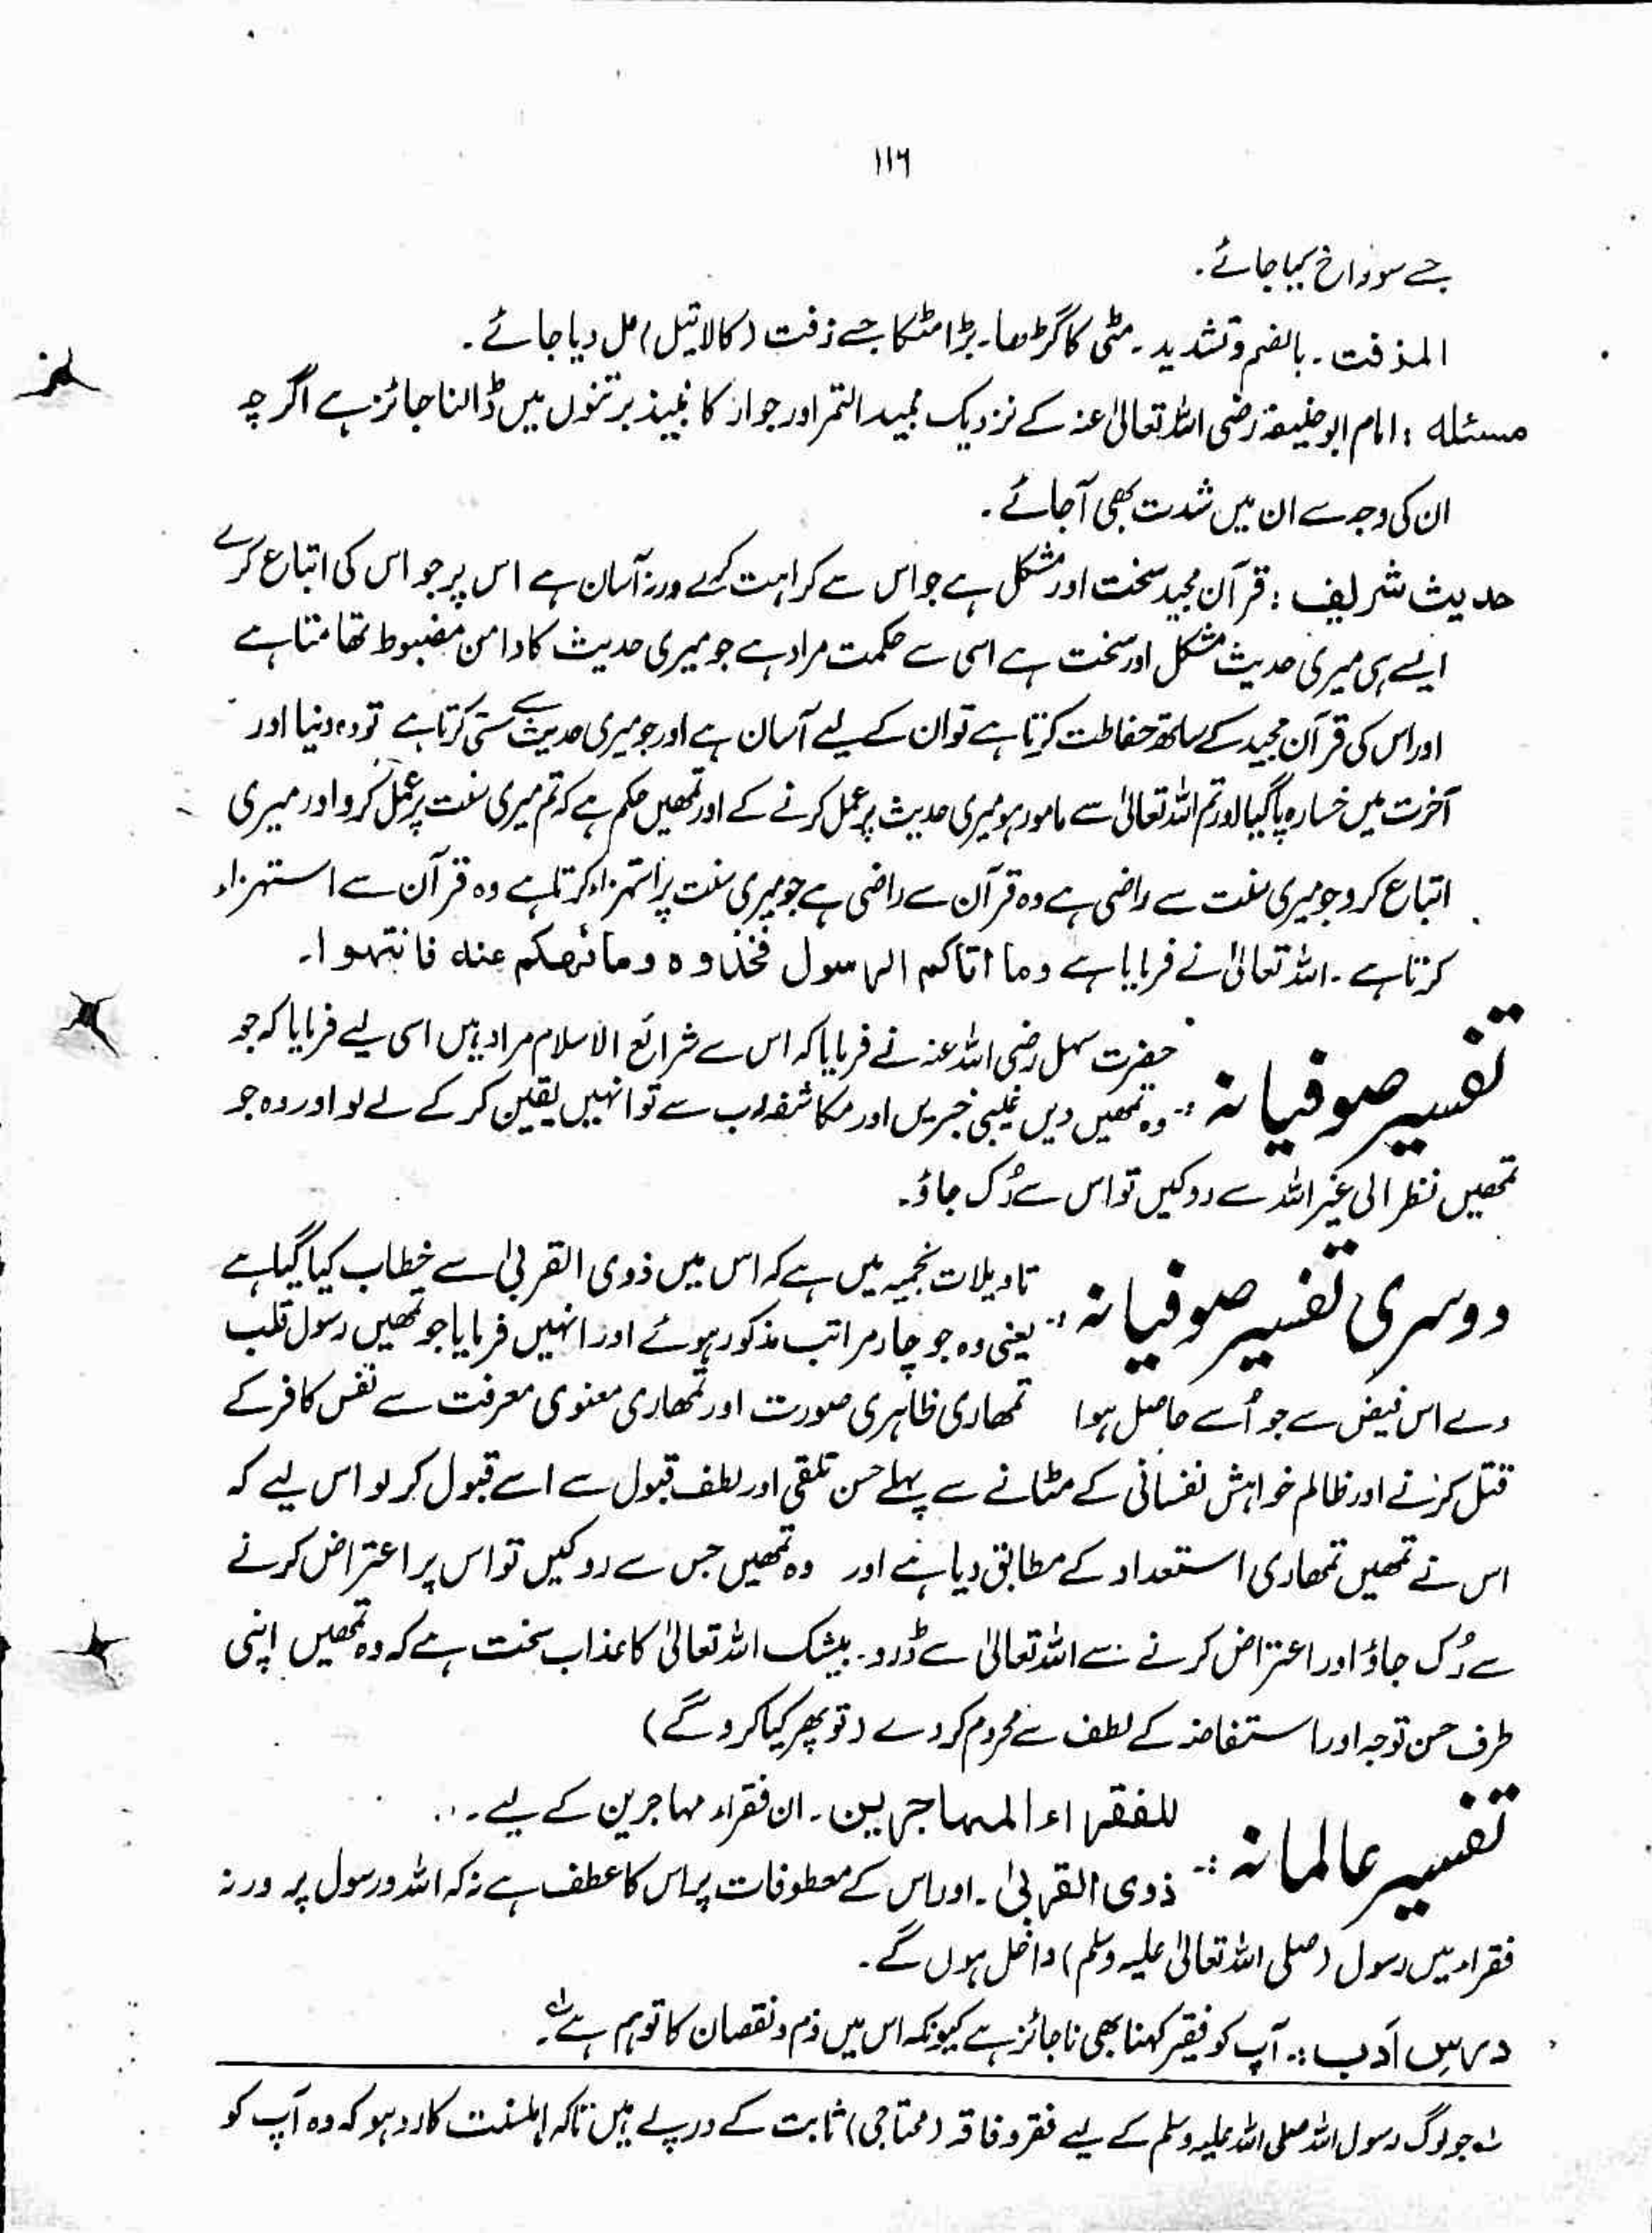 ۱۱۶
جسے سوراخ کیا جائے۔
المذفت۔ بالضم وتشدید۔ مٹی کا گڑھا۔ بڑا مٹکا جسے زفت (کالا تیل) مل دیا جائے۔
مسئلہ : امام ابو حنیفہ رضی اللہ تعالیٰ عنہ کے نزدیک نبیذ التمر اور جوار کا نبیذ برتنوں میں ڈالنا جائز ہے اگرچہ
ان کی وجہ سے ان میں شدت بھی آجائے۔
حدیث شریف : قرآن مجید سخت اور مشکل ہے جو اس سے کراہت کرے ورنہ آسان ہے اس پر جو اس کی اتباع کرے
ایسے ہی میری حدیث مشکل اور سخت ہے اسی سے حکمت مراد ہے جو میری حدیث کا دامن مضبوط تھامتا ہے
اور اس کی قرآن مجید کے ساتھ حفاظت کرتا ہے تو ان کے لیے آسان ہے اور جو میری حدیث سے سستی کرتا ہے تو وہ دنیا اور
آخرت میں خسارہ پا گیا اور تم اللہ تعالیٰ سے مامور ہو میری حدیث پر عمل کرنے کے اور تمھیں حکم ہے کہ تم میری سنت پر عمل کرو اور میری
اتباع کرو جو میری سنت سے راضی ہے وہ قرآن سے راضی ہے جو میری سنت پر استہزاء کرتا ہے وہ قرآن سے استہزاء
کرتا ہے۔ اللہ تعالیٰ نے فرمایا ہے وما اتاکم الرسول فخذوہ وما نھٰکم عنہ فانتہوا۔
تفسیر صوفیانہ :۔ حضرت سہل رضی اللہ عنہ نے فرمایا کہ اس سے شرائع الاسلام مراد ہیں اسی لیے فرمایا کہ جو
وہ تمھیں دیں غیبی خبریں اور مکاشفہ رب سے تو انہیں یقین کر کے لے لو اور وہ جو
تمھیں نظر الی غیر اللہ سے روکیں تو اس سے رُک جاؤ۔
دوسری تفسیر صوفیانہ :۔ تاویلات نجمیہ میں ہے کہ اس میں ذوی القربیٰ سے خطاب کیا گیا ہے
یعنی وہ جو چار مراتب مذکور ہوئے اور انہیں فرمایا جو تمھیں رسول قلب
دے اس فیض سے جو اُسے حاصل ہوا تمھاری ظاہری صورت اور تمھاری معنوی معرفت سے نفس کافر کے
قتل کرنے اور ظالم خواہش نفسانی کے مٹانے سے پہلے حسن تلقی اور لطف قبول سے اسے قبول کر لو اس لیے کہ
اس نے تمھیں تمھاری استعداد کے مطابق دیا ہے اور وہ تمھیں جس سے روکیں تو اس پر اعتراض کرنے
سے رُک جاؤ اور اعتراض کرنے سے اللہ تعالیٰ سے ڈرو۔ بیشک اللہ تعالیٰ کا عذاب سخت ہے کہ وہ تمھیں اپنی
طرف حسن توجہ اور استفاضہ کے لطف سے محروم کر دے (تو پھر کیا کرو گے)
تفسیر عالمانہ :۔ للفقراء المہاجرین۔ ان فقراء مہاجرین کے لیے۔
ذوی القربیٰ۔ اور اس کے معطوفات پر اس کا عطف ہے نہ کہ اللہ و رسول پر ورنہ
فقراء میں رسول (صلی اللہ تعالیٰ علیہ وسلم) داخل ہوں گے۔
درسِ اَدب :۔ آپ کو فقیر کہنا بھی ناجائز ہے کیونکہ اس میں ذم و نقصان کا توہم ہے لہ
لہ جو لوگ رسول اللہ صلی اللہ علیہ وسلم کے لیے فقر و فاقہ (محتاجی) ثابت کے درپے ہیں تاکہ اہلسنت کا رد ہو کہ وہ آپ کو